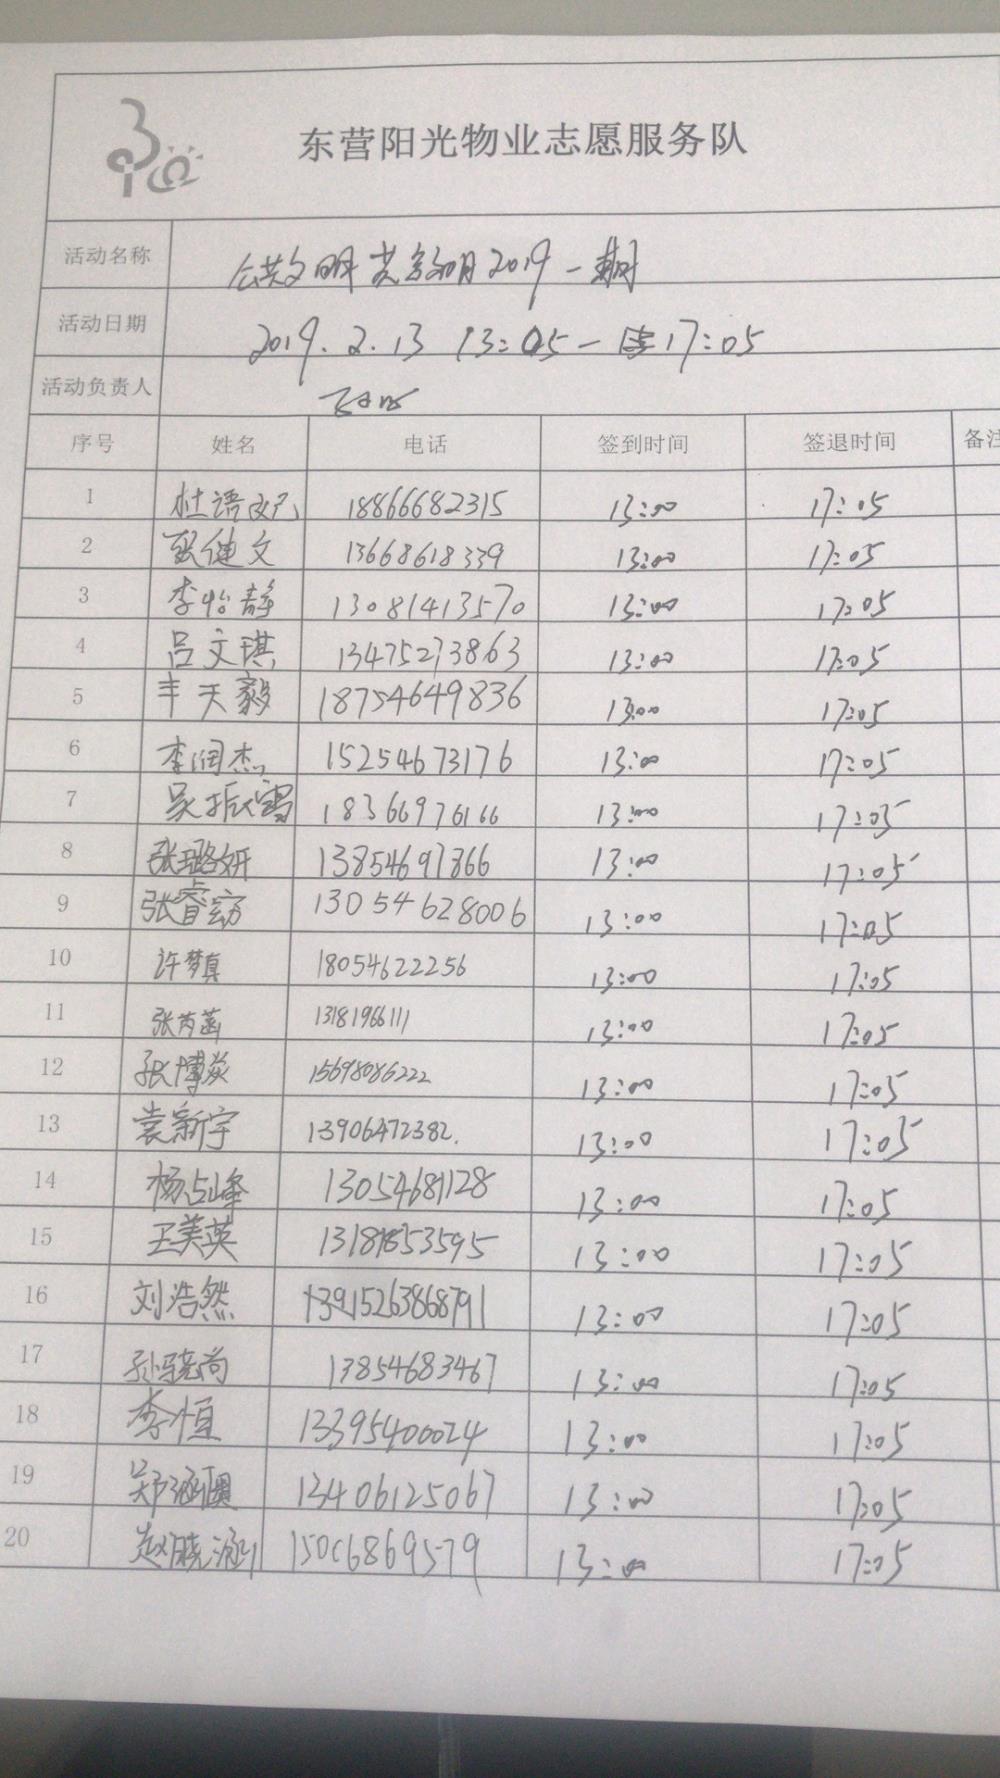 东营阳光物业志愿服务队
活动名称 公共文明 2019一期
活动日期 2019.2.13 13:05-17:05
活动负责人
序号 姓名 电话 签到时间 签退时间 备注
1 杜语 18866682315 13:00 17:05
2 张健文 13668618339 13:00 17:05
3 李怡静 13081413570 13:00 17:05
4 吕文琪 13475273863 13:00 17:05
5 丰天毅 18754649836 13:00 17:05
6 李润杰 15254673176 13:00 17:05
7 吴振 18366976166 13:00 17:05
8 张璐妍 13854697866 13:00 17:05
9 张睿 13054628006 13:00 17:05
10 许梦真 18054622256 13:00 17:05
11 张芮菡 13181966111 13:00 17:05
12 张博焱 15698086222 13:00 17:05
13 袁新宇 13906472382. 13:00 17:05
14 杨占峰 13054681128 13:00 17:05
15 王美英 13181853595 13:00 17:05
16 刘浩然 13:00 17:05
17 孙骁尚 13854683467 13:00 17:05
18 李恒 13395400024 13:00 17:05
19 郑涵 13406125067 13:00 17:05
20 赵晓涵 15006869579 13:00 17:05